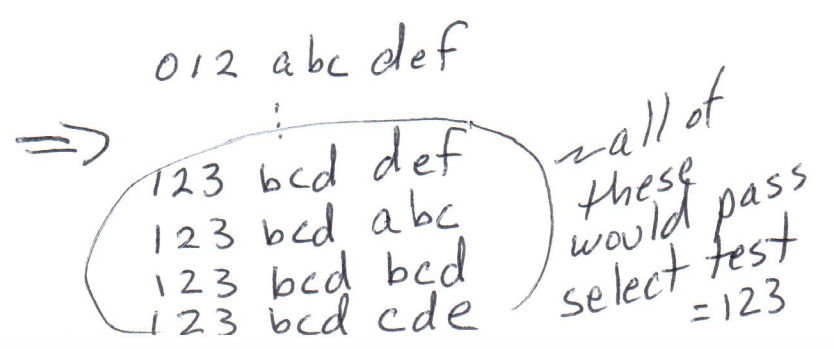 012 abc def
⋮
⇒
123 bcd def
123 bcd abc
123 bcd bcd
123 bcd cde
~all of
these
would pass
select test
=123